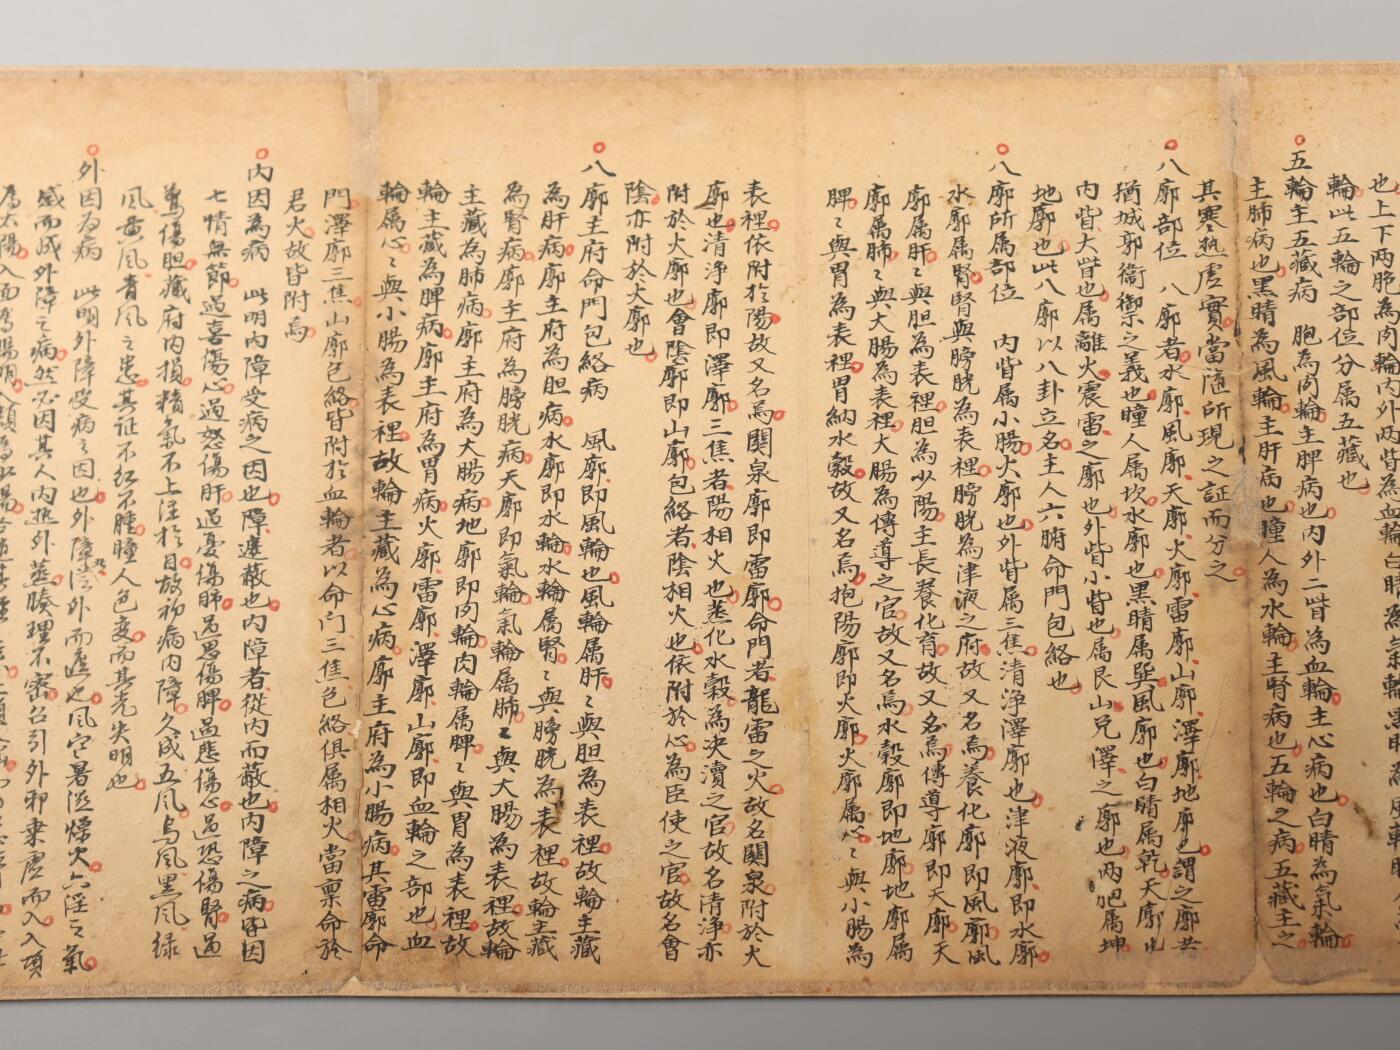 也上下两胞為肉輪内外两眥為血輪白睛為氣輪黑睛為風輪
輪此五輪之部位分属五藏也
五輪主五藏病　胞為肉輪主脾病也内外二眥為血輪主心病也白睛為氣輪
主肺病也黑睛為風輪主肝病也瞳人為水輪主腎病也五輪之病五藏主之
其寒熱虚實當随所現之証而分之
八廓部位　八廓者水廓風廓天廓火廓雷廓山廓澤廓地廓也謂之廓者
猶城郭衞禦之義也瞳人属坎水廓也黑睛属巽風廓也白睛属乾天廓也
内眥大眥也属離火震雷之廓也外眥小眥也属艮山兑澤之廓也两胞属坤
地廓也此八廓以八卦立名主人六腑命門包絡也
八廓所属部位　内眥属小腸火廓也外眥属三焦清浄澤廓也津液廓即水廓
水廓属腎腎與膀胱為表裡膀胱為津液之府故又名焉養化廓即風廓風
廓属肝〻與胆為表裡胆為少陽主長養化育故又名焉傳導廓即天廓天
廓属肺〻與大腸為表裡大腸為傳導之官故又名焉水穀廓即地廓地廓属
脾〻與胃為表裡胃納水穀故又名焉抱陽廓即火廓火廓属心〻與小腸為
表裡依附扵陽故又名焉關泉廓即雷廓命門者龍雷之火故名關泉附於火
廓也清浄廓即澤廓三焦者陽相火也蒸化水穀為决瀆之官故名清浄亦
附於火廓也會陰廓即山廓包絡者陰相火也依附於心為臣使之官故名會
陰亦附於火廓也
八廓主府命門包絡病　風廓即風輪也風輪属肝〻與胆為表裡故輪主藏
為肝病廓主府為胆病水廓即水輪水輪属腎〻與膀胱為表裡故輪主藏
為腎病廓主府為膀胱病天廓即氣輪氣輪属肺〻與大腸為表裡故輪
主藏為肺病廓主府為大腸病地廓即肉輪肉輪属脾〻與胃為表裡故
輪主藏為脾病廓主府為胃病火廓雷廓澤廓山廓即血輪之部也血
輪属心〻與小腸為表裡故輪主藏為心病廓主府為小腸病其雷廓命
門澤廓三焦山廓包絡皆附於血輪者以命門三焦包絡俱属相火當禀命於
君火故皆附焉
内因為病　此明内障受病之因也障遮蔽也内障者從内而蔽也内障之病因
七情無節過喜傷心過怒傷肝過憂傷肺過思傷脾過悲傷心過恐傷腎過
驚傷胆藏府内損精氣不上注於目故初病内障久成五風烏風黑風緑
風黄風青風之患其証不紅不腫瞳人色變而其光失明也
外因為病　此明外障受病之因也外障從外而遮也風寒暑湿燥火六淫之氣
感而成外障之病然必因其人内熱外蒸腠理不密召引外邪乗虚而入入項